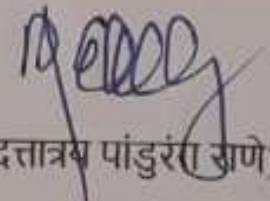 दत्तात्रय पांडुरंग राणे